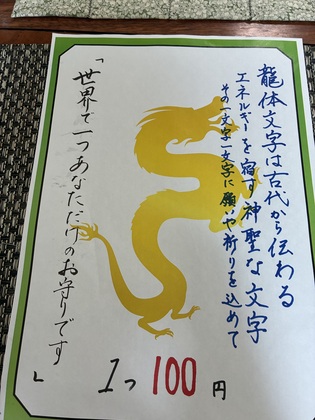 龍体文字は古代から伝わる
エネルギーを宿す神聖な文字
その一文字一文字に願いや祈りを込めて
「世界で一つあなただけのお守りです」
1つ100円